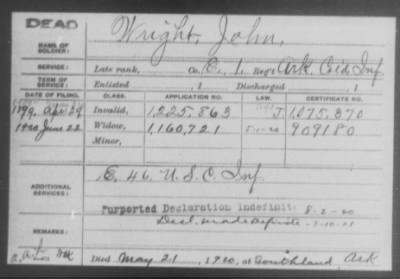 DEAD
NAME OF SOLDIER: Wright, John,
SERVICE: Late rank, Co. E, 1, Reg't Ark. Col'd Inf.
TERM OF SERVICE: Enlisted , 1 Discharged , 1
DATE OF FILING. CLASS. APPLICATION NO. LAW. CERTIFICATE NO.
Apr 29 Invalid, 1,225,863 J 1,075,870
1920 June 22 Widow, 1,160,721 5-1-20 909180
Minor,
ADDITIONAL SERVICES: E. 46. U.S.C. Inf.
Purported Declaration Indefinite 8-2-20
Decl. made 7-10-25
REMARKS:
Died May 21, 1920, at Southland Ark